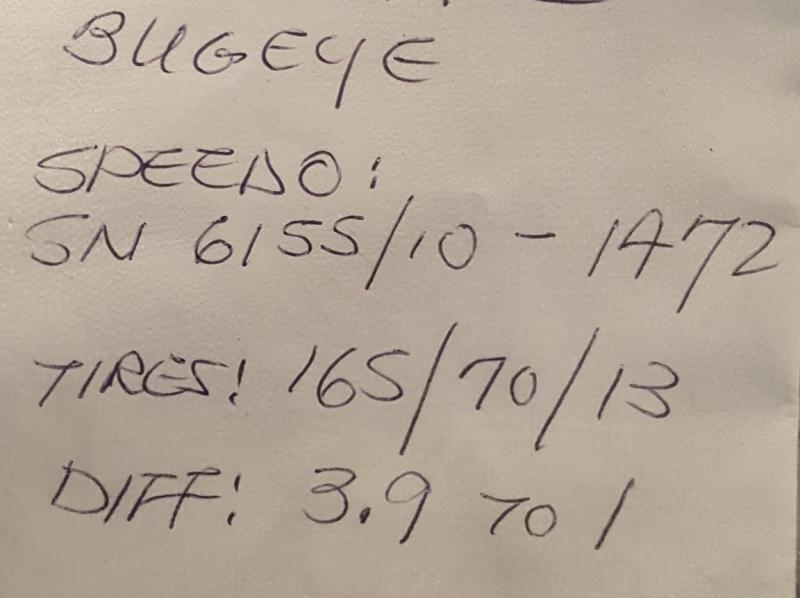 BUGEYE
SPEEDO:
SN 6155/10 - 1472
TIRES: 165/70/13
DIFF: 3.9 TO 1